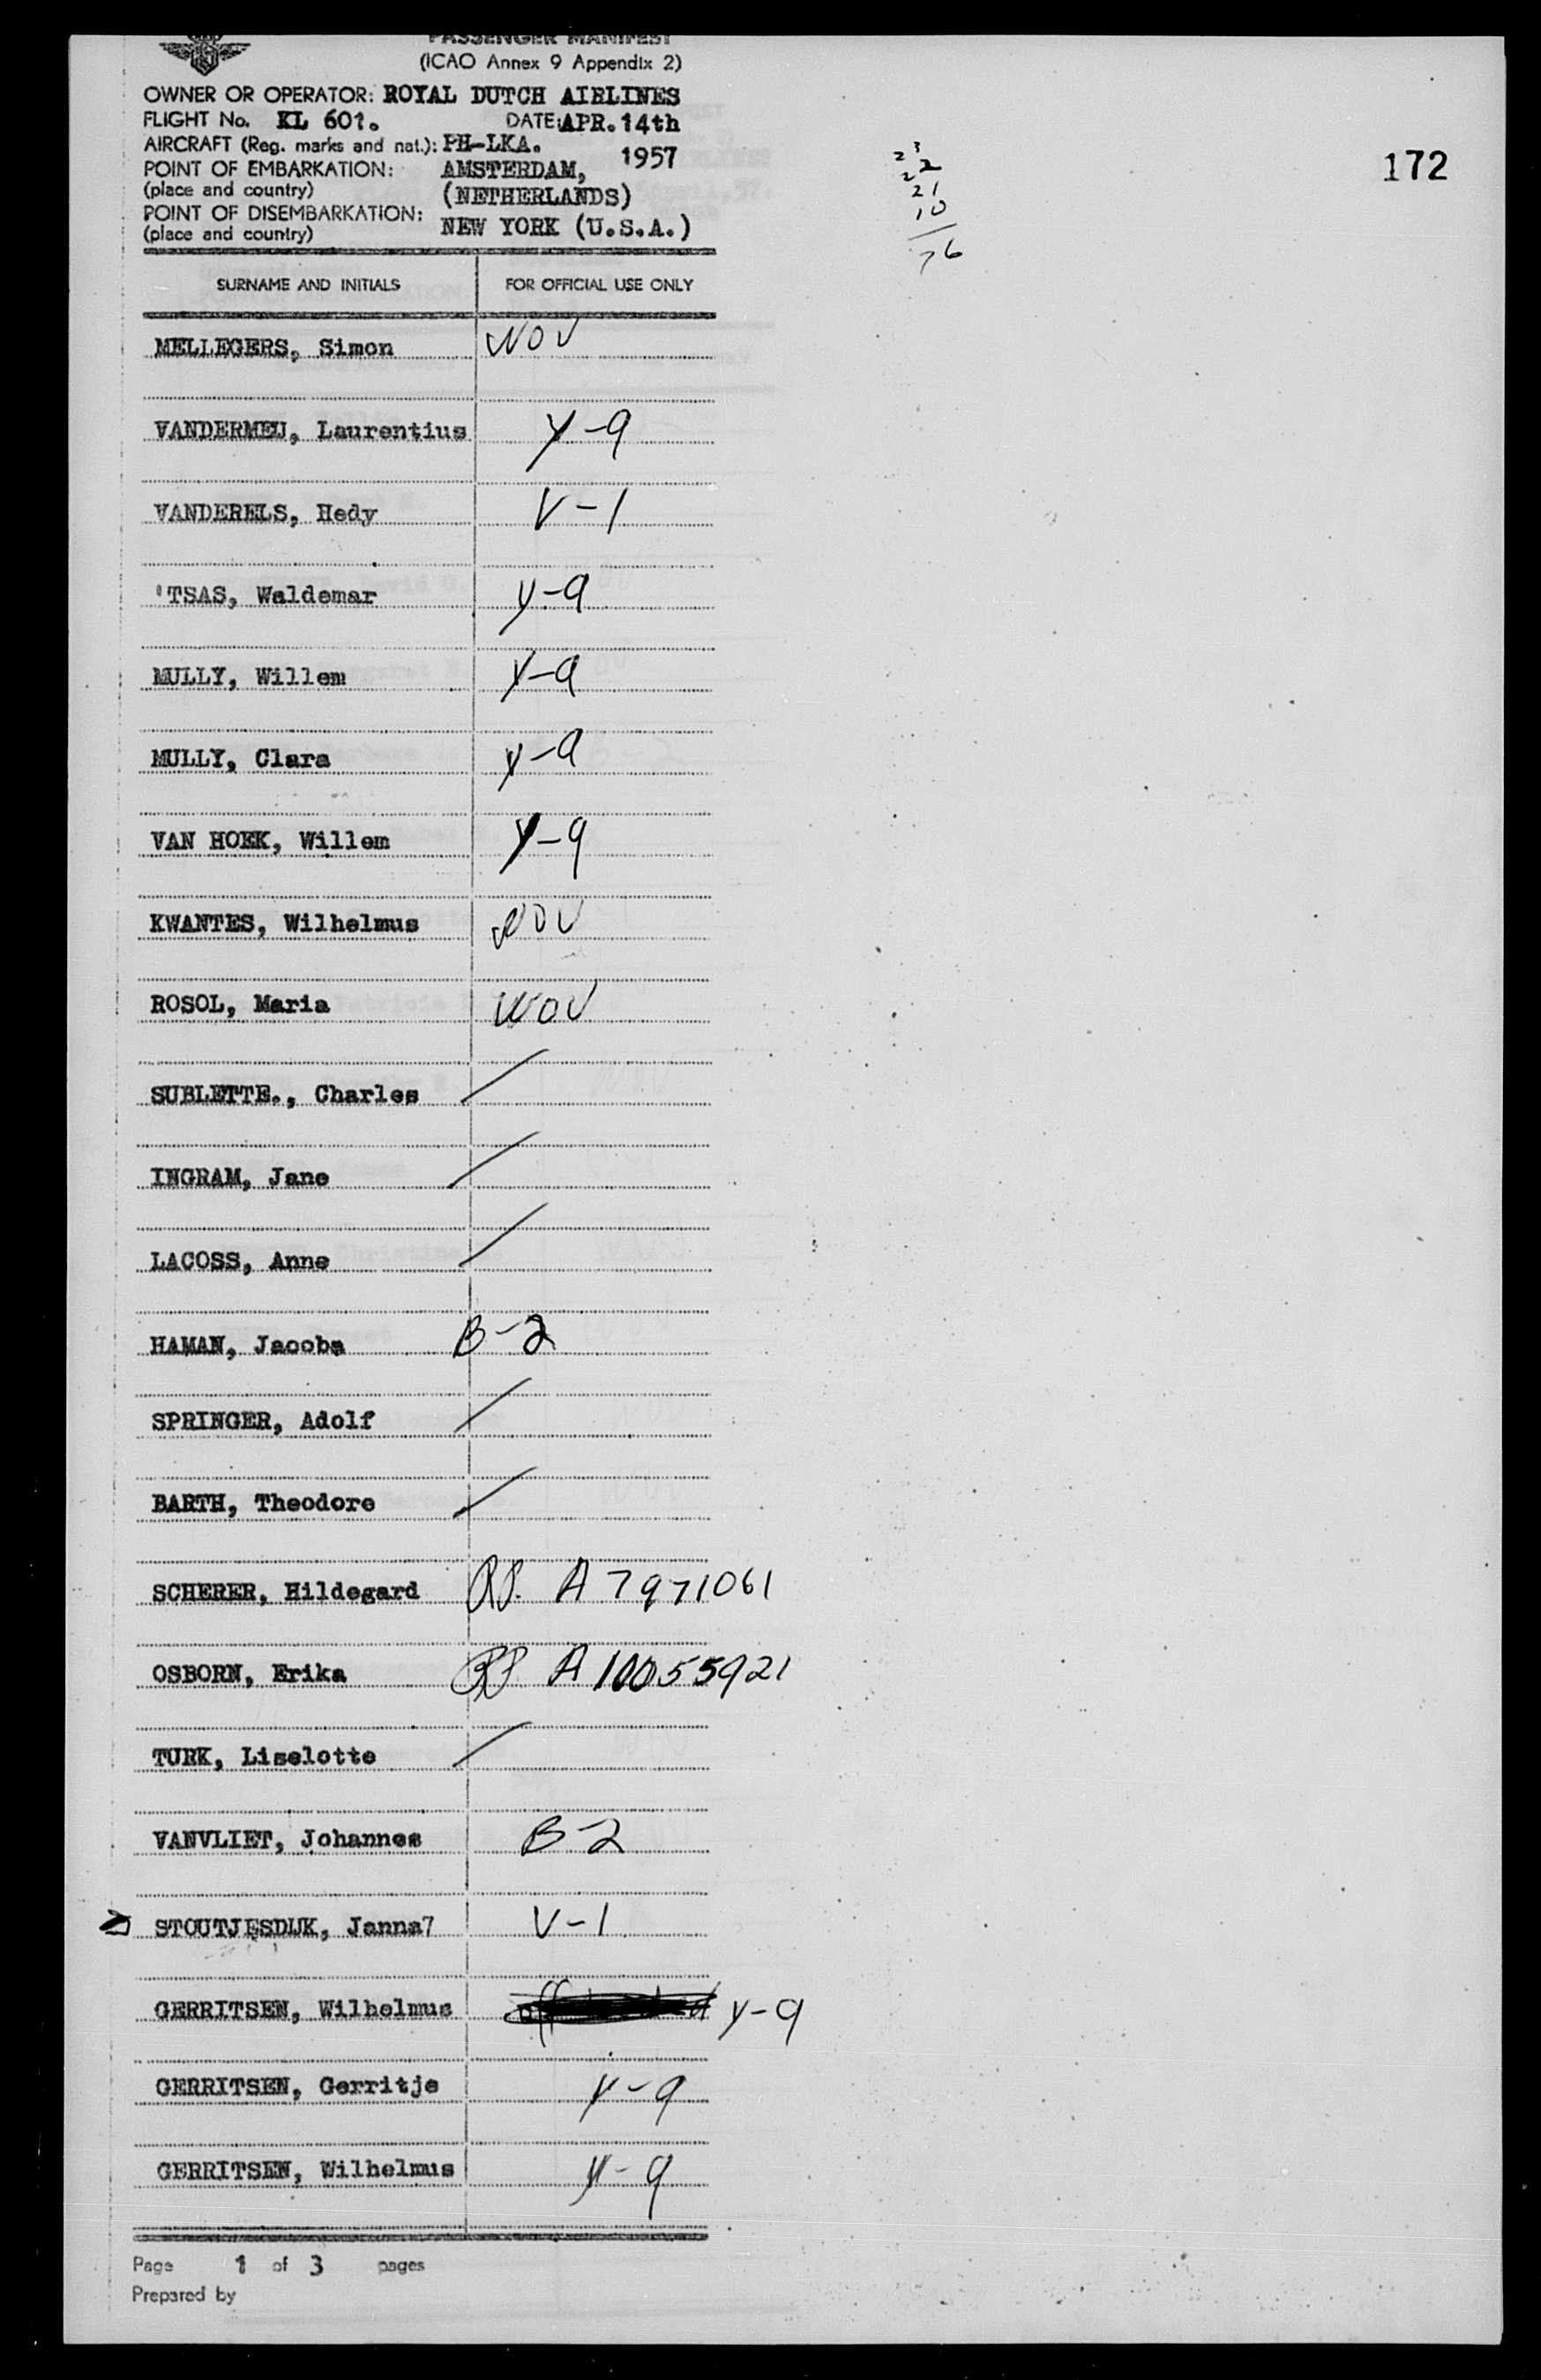 PASSENGER MANIFEST
(ICAO Annex 9 Appendix 2)
OWNER OR OPERATOR: ROYAL DUTCH AIRLINES
FLIGHT No. KL 601. DATE: APR. 14th
AIRCRAFT (Reg. marks and nat.): PH-LKA. 1957
POINT OF EMBARKATION: AMSTERDAM,
(place and country) (NETHERLANDS)
POINT OF DISEMBARKATION:
(place and country) NEW YORK (U.S.A.)
23
22
21
10
76
172
SURNAME AND INITIALS FOR OFFICIAL USE ONLY
MELLEGERS, Simon NOV
VANDERMEIJ, Laurentius Y-9
VANDERELS, Hedy V-1
'TSAS, Waldemar Y-9
MULLY, Willem Y-9
MULLY, Clara Y-9
VAN HOEK, Willem Y-9
KWANTES, Wilhelmus NOV
ROSOL, Maria NOV
SUBLETTE., Charles /
INGRAM, Jane /
LACOSS, Anne /
HAMAN, Jacoba B-2
SPRINGER, Adolf /
BARTH, Theodore /
SCHERER, Hildegard RP. A7971061
OSBORN, Erika RP A10055921
TURK, Liselotte /
VANVLIET, Johannes B-2
STOUTJESDIJK, Janna7 V-1
GERRITSEN, Wilhelmus Y-9
GERRITSEN, Gerritje Y-9
GERRITSEN, Wilhelmus Y-9
Page 1 of 3 pages
Prepared by